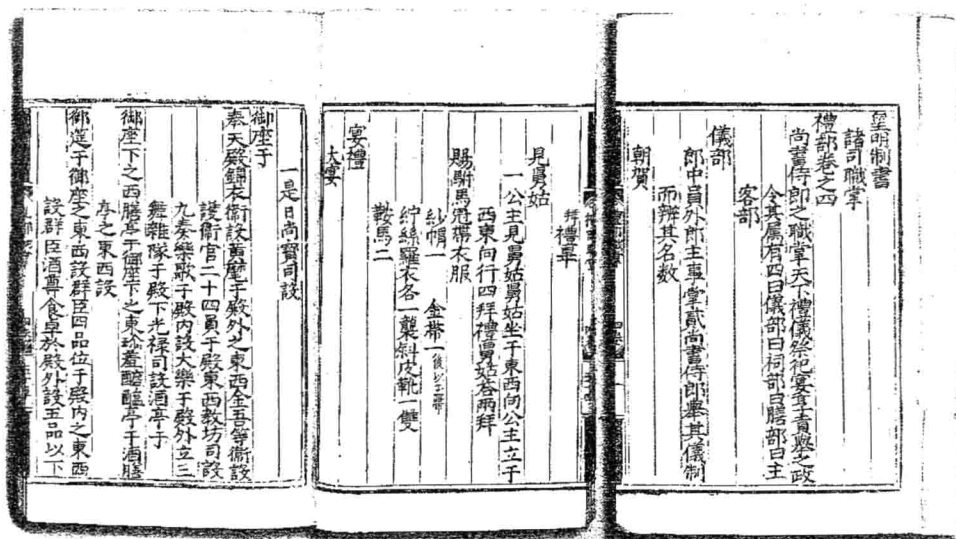 皇明制書
諸司職掌
禮部卷之四
尚書侍郎之職掌天下禮儀祭祀宴享貢舉之政
令其属有四曰儀部曰祠部曰膳部曰主
客部
儀部
郎中員外郎主事掌貳尚書侍郎舉其儀制
而辨其名数
朝賀
拜禮畢
見舅姑
一公主見舅姑舅姑坐于東西向公主立于
西東向行四拜禮舅姑荅兩拜
賜駙馬冠帶衣服
紗帽一 金帶一後以玉帶
紵絲羅衣各一襲斜皮靴一雙
鞍馬二
宴禮
大宴
一是日尚寶司設
御座于
奉天殿錦衣衛設黄麾于殿外之東西金吾等衛設
護衛官二十四員于殿東西教坊司設
九奏樂歌于殿内設大樂于殿外立三
舞雜隊于殿下光禄司設酒亭于
御座下之西膳亭于御座下之東珍羞醯醢亭于酒膳
亭之東西設
御筵于御座之東西設群臣四品位于殿内之東西
設群臣酒尊食卓於殿外設五品以下